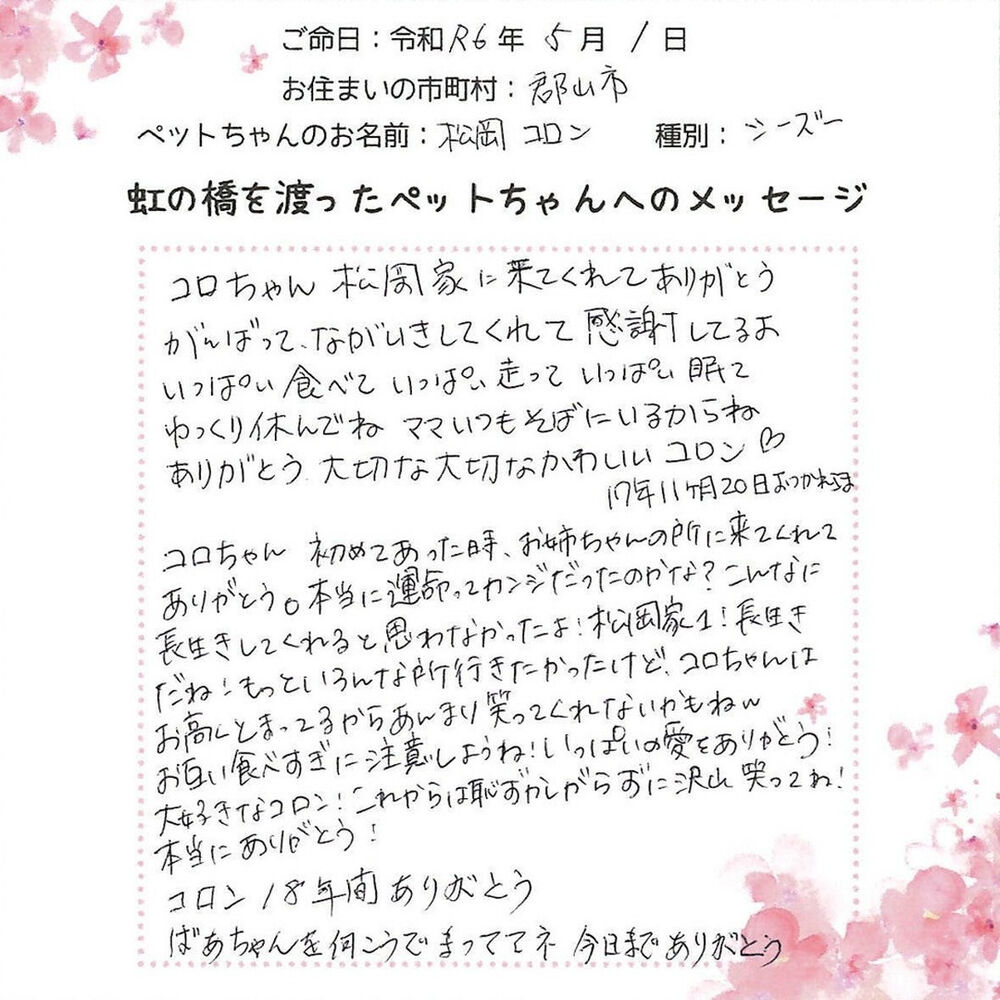 ご命日：令和R6年 5月 1日
お住まいの市町村：郡山市
ペットちゃんのお名前：松岡 コロン 種別：シーズー
虹の橋を渡ったペットちゃんへのメッセージ
コロちゃん 松岡家に来てくれてありがとう
がんばって、ながいきしてくれて感謝してるよ
いっぱい食べて いっぱい走って いっぱい眠て
ゆっくり休んでね ママいつもそばにいるからね
ありがとう 大切な大切なかわいい コロン♡
17年11ヶ月20日おつかれさま
コロちゃん 初めてあった時、お姉ちゃんの所に来てくれて
ありがとう。本当に運命ってカンジだったのかな？こんなに
長生きしてくれると思わなかったよ！松岡家1！長生き
だね！もっといろんな所行きたかったけど、コロちゃんは
お高くとまってるからあんまり笑ってくれないかもねw
お互い食べすぎに注意しようね！いっぱいの愛をありがとう！
大好きなコロン！これからは恥ずかしがらずに沢山笑ってね！
本当にありがとう！
コロン 18年間ありがとう
ばあちゃんを何こうでまっててネ 今日までありがとう